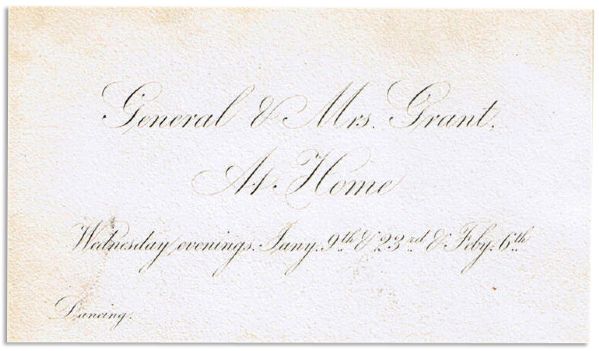 General & Mrs. Grant.
At Home
Wednesday evenings. Jany. 9th & 23rd & Feby. 6th
Dancing.